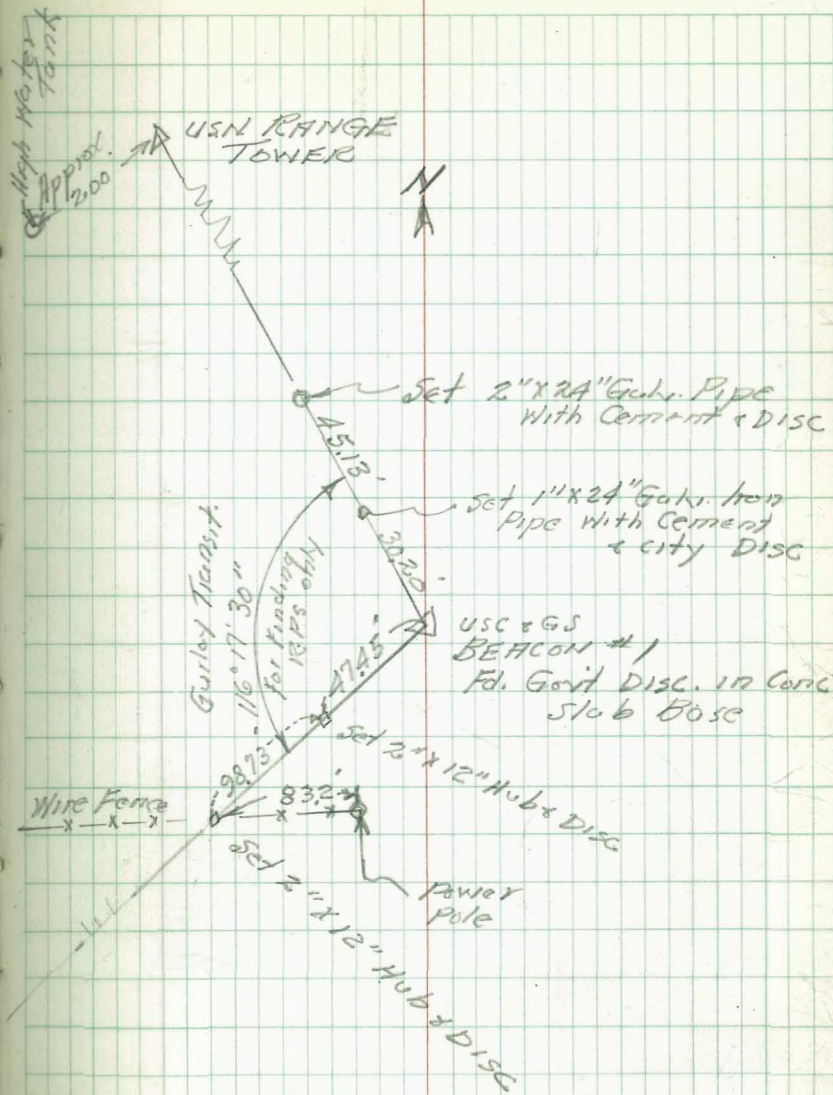 High Water
Tank
Approx.
200
USN RANGE
TOWER
N
Set 2"X24" Galv. Pipe
With Cement & DISC
45.13'
Set 1"X24" Galv. Iron
Pipe With Cement
& City DISC
30.20'
Gurley Transit
116°17'30"
for Finding
R.P.s only
USC & GS
BEACON #1
Fd. Gov't Disc. in Conc
Slab Base
47.45'
Set 2"X12" Hub & DISC
98.73'
83.2'
Wire Fence
Set 2"X12" Hub & DISC
Power
Pole